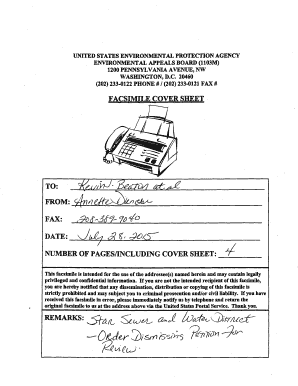 UNITED STATES ENVIRONMENTAL PROTECTION AGENCY
ENVIRONMENTAL APPEALS BOARD (1103M)
1200 PENNSYLVANIA AVENUE, NW
WASHINGTON, D.C. 20460
(202) 233-0122 PHONE # / (202) 233-0121 FAX #
FACSIMILE COVER SHEET
TO: Kevin Beaton et al
FROM: Annette Duncan
FAX: 208-389-9040
DATE: July 28, 2015
NUMBER OF PAGES/INCLUDING COVER SHEET: 4
This facsimile is intended for the use of the addressee(s) named herein and may contain legally
privileged and confidential information. If you are not the intended recipient of this facsimile,
you are hereby notified that any dissemination, distribution or copying of this facsimile is
strictly prohibited and may subject you to criminal prosecution and/or civil liability. If you have
received this facsimile in error, please immediately notify us by telephone and return the
original facsimile to us at the address above via the United States Postal Service. Thank you.
REMARKS: Star Sewer and Water District
- Order Dismissing Petition For
Review